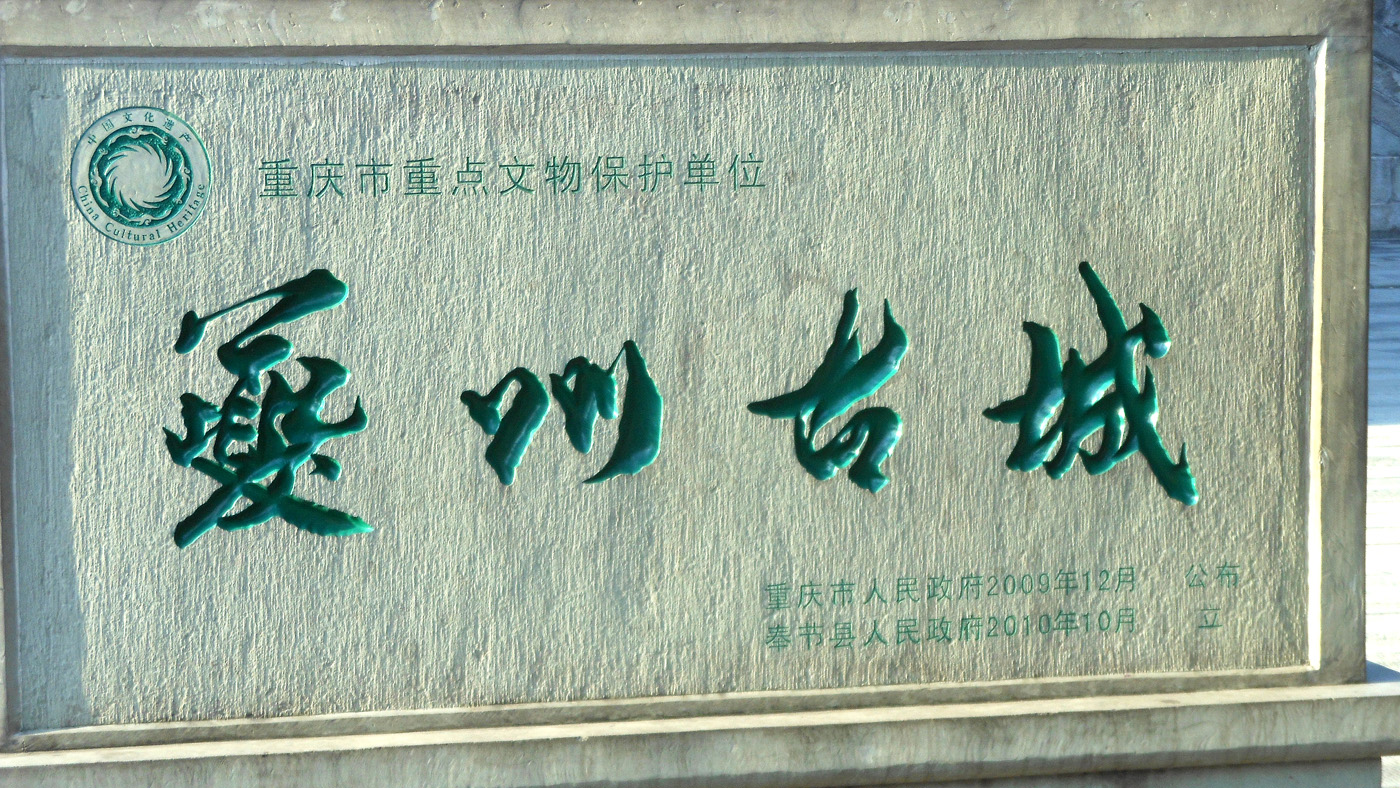 中国文化遗产
China Cultural Heritage
重庆市重点文物保护单位
夔州古城
重庆市人民政府2009年12月 公布
奉节县人民政府2010年10月 立